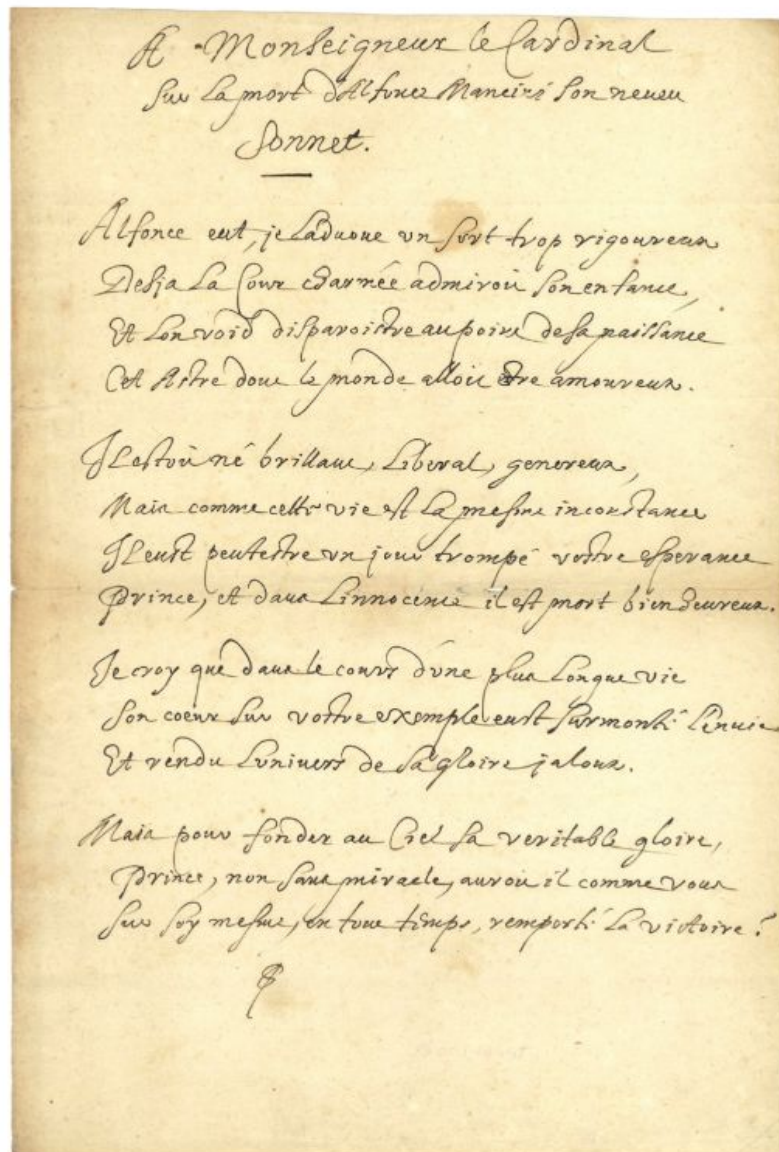 A Monseigneur le Cardinal
sur La mort d'Alfonce Mancini son neueu
Sonnet.
Alfonce eut, je L'aduoue un sort trop rigoureux
Desja La Cour charmée admiroit son enfance,
Et Lon void disparoistre au point de sa naissance
Cet Astre dont le monde alloit etre amoureux.
Il estoit né brillant, Liberal, genereux,
Mais comme cette vie est La mesme inconstance
Il eust peutestre un jour trompé vostre esperance
Prince, et dans L'innocence il est mort bienheureux.
Je croy que dans le cours d'une plus Longue vie
Son coeur sur vostre exemple eust surmonté L'enuie
Et rendu L'uniuers de sa gloire jaloux.
Mais pour fonder au Ciel sa veritable gloire,
Prince, non sans miracle, auroit il comme vous
Sur soy mesme, en tout temps, remporté La victoire?